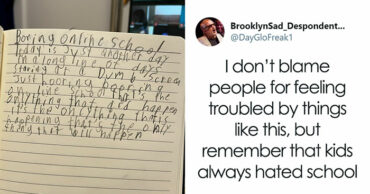 Boring Online School
Today is Just another day
in a long line of days
staring at a Dumb Screen
Just boring boring
online school that's the
only thing that did happen
it's the only thing that's
happening that's the only
thing that will happen
BrooklynSad_Despondent...
@DayGloFreak1
I don't blame
people for feeling
troubled by things
like this, but
remember that kids
always hated school